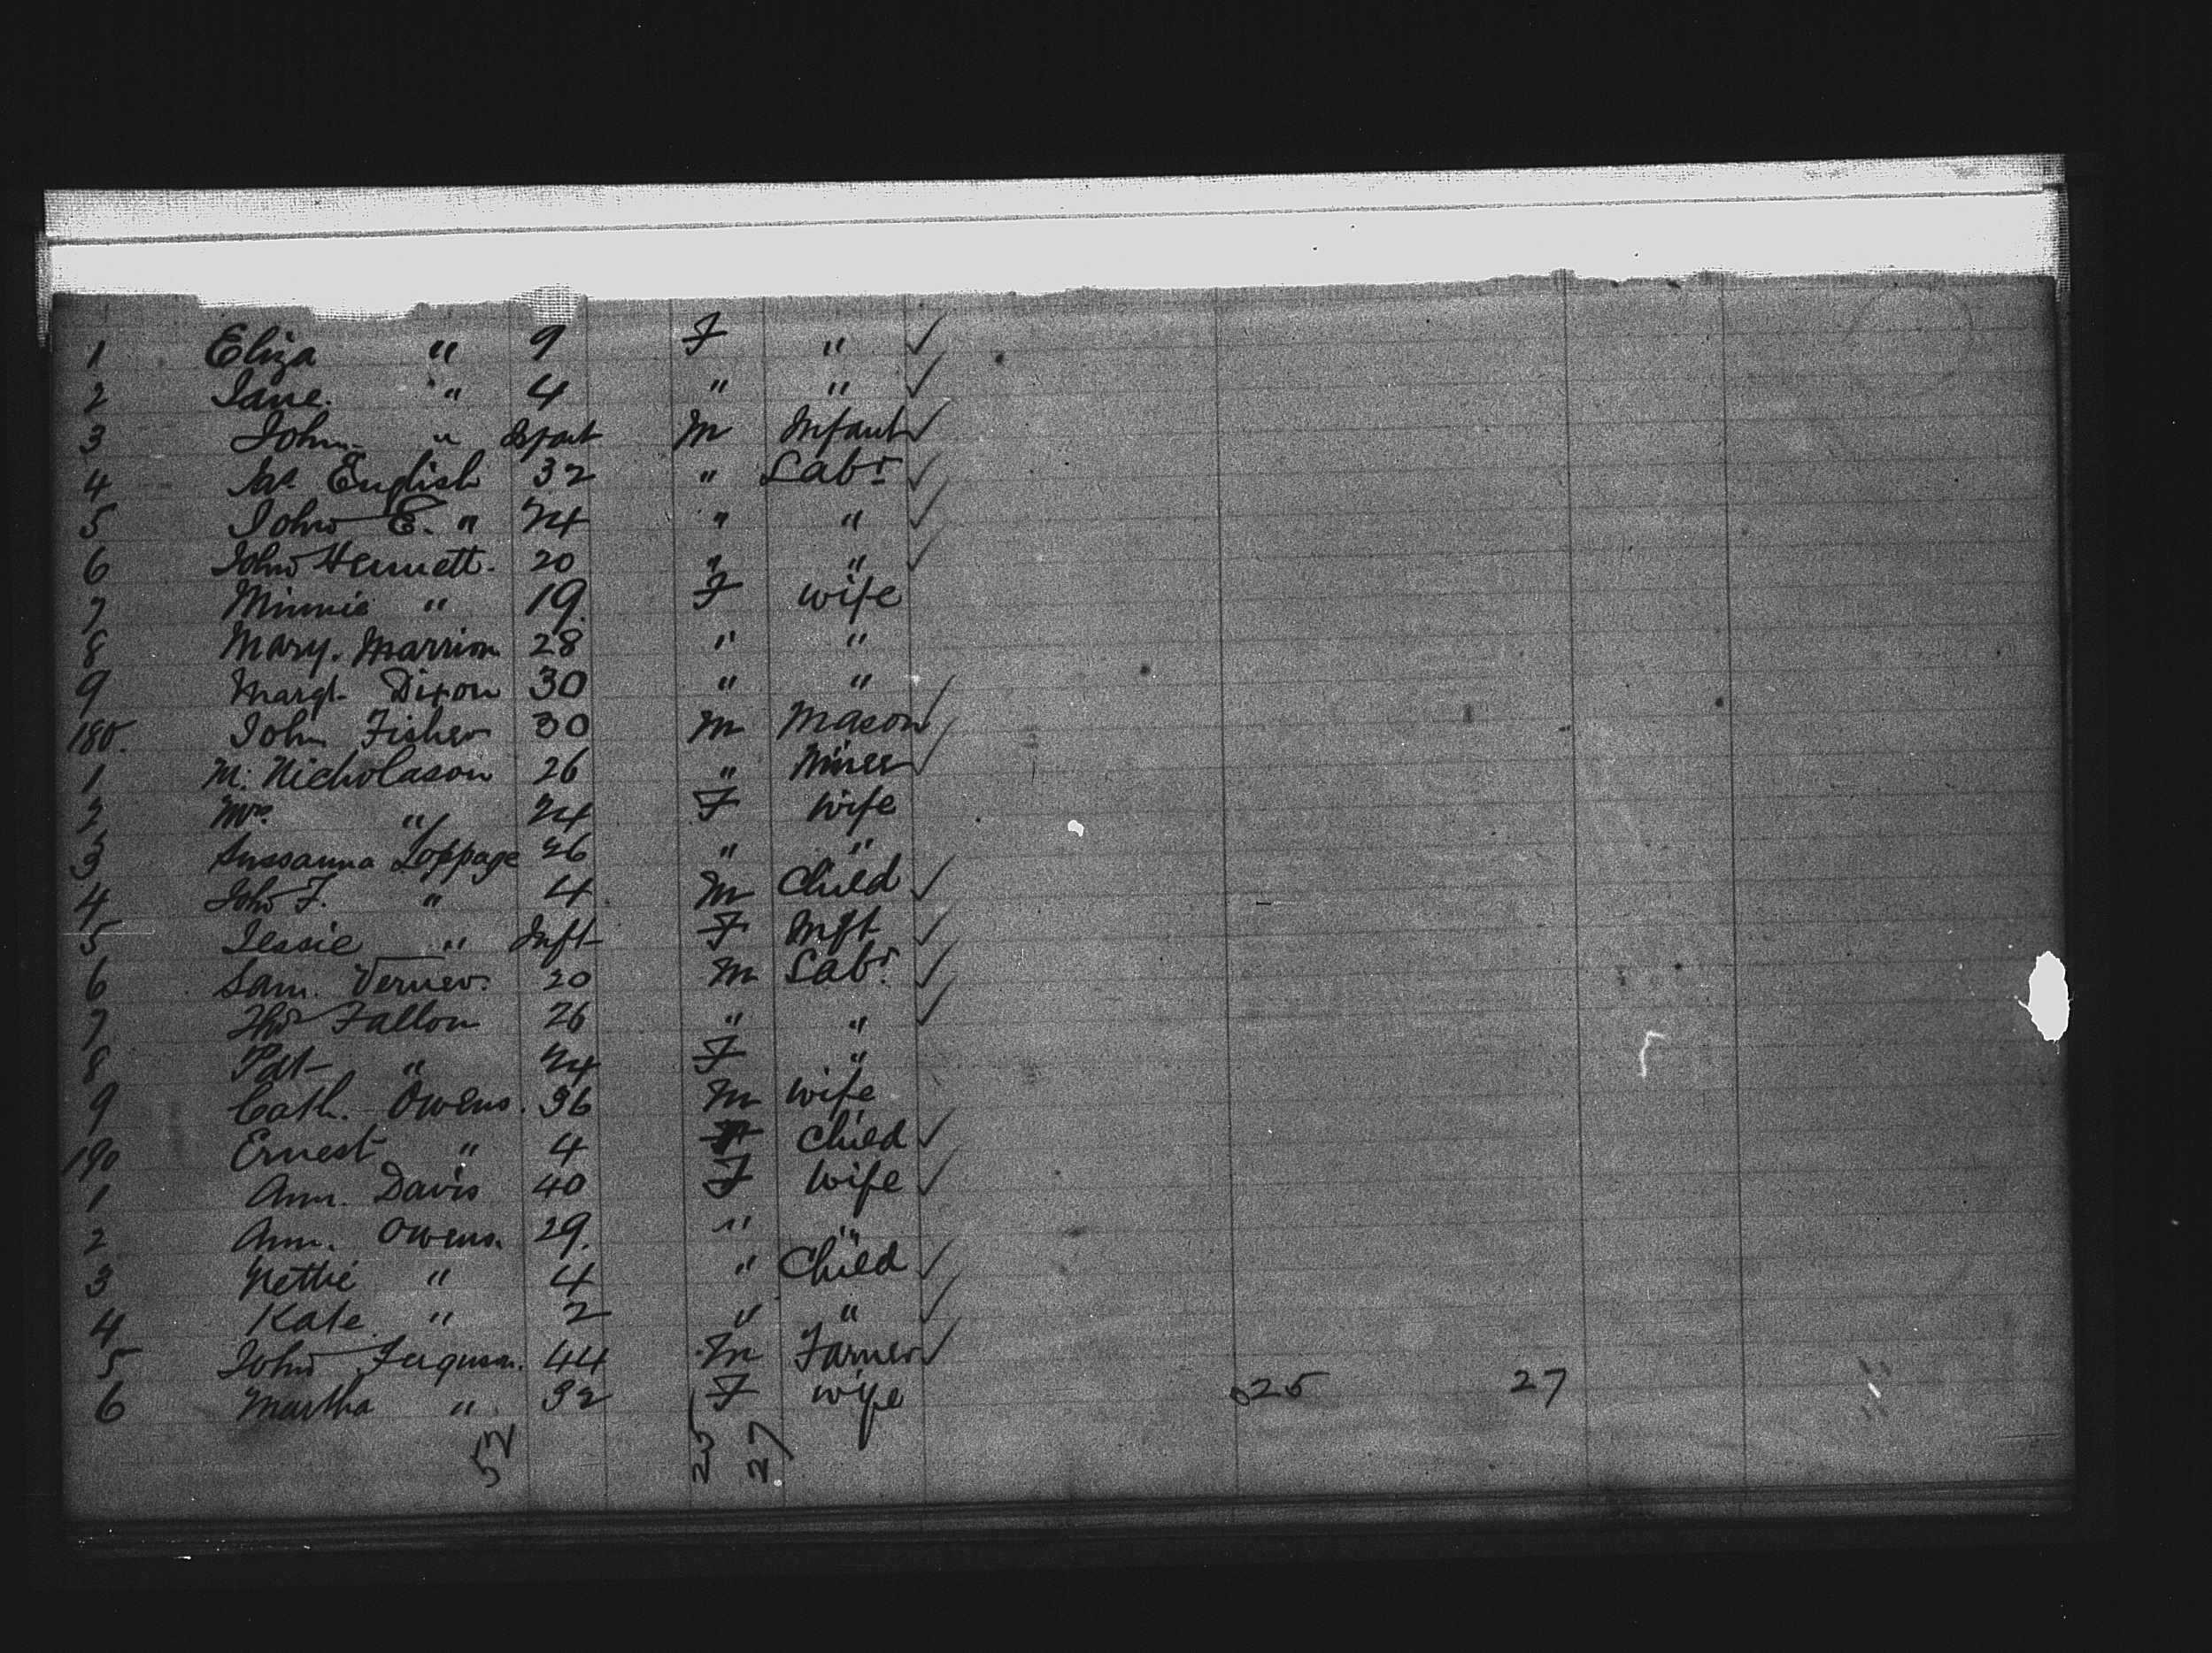 1 Eliza " 9 F " ✓
2 Jane. " 4 " " ✓
3 John " Infant M Infant ✓
4 Jas English 32 " Labr ✓
5 John E. " 24 " " ✓
6 John Hennett. 20 " " ✓
7 Minnie " 19. F wife
8 Mary. Marrion 28 " "
9 Margt Dixon 30 " " ✓
180. John Fisher 30 M Mason ✓
1 M. Nicholason 26 " Miner ✓
2 Mrs " 24 F Wife
3 Sussanna Loppage 26 " "
4 John F. " 4 M Child ✓
5 Jessie " Inft F Inft ✓
6 Sam. Verner. 20 M Labr. ✓
7 Thos Fallon 26 " " ✓
8 Pat " 24 F "
9 Cath. Owens. 36 M Wife
190 Ernest " 4 Child ✓
1 Ann. Davis 40 F Wife ✓
2 Ann. Owens. 29. " "
3 Nettie " 4 " Child ✓
4 Kate " 2 " " ✓
5 John Ferguson. 44 M Farmer ✓
6 Martha " 32 F wife 25 27
52 25 27